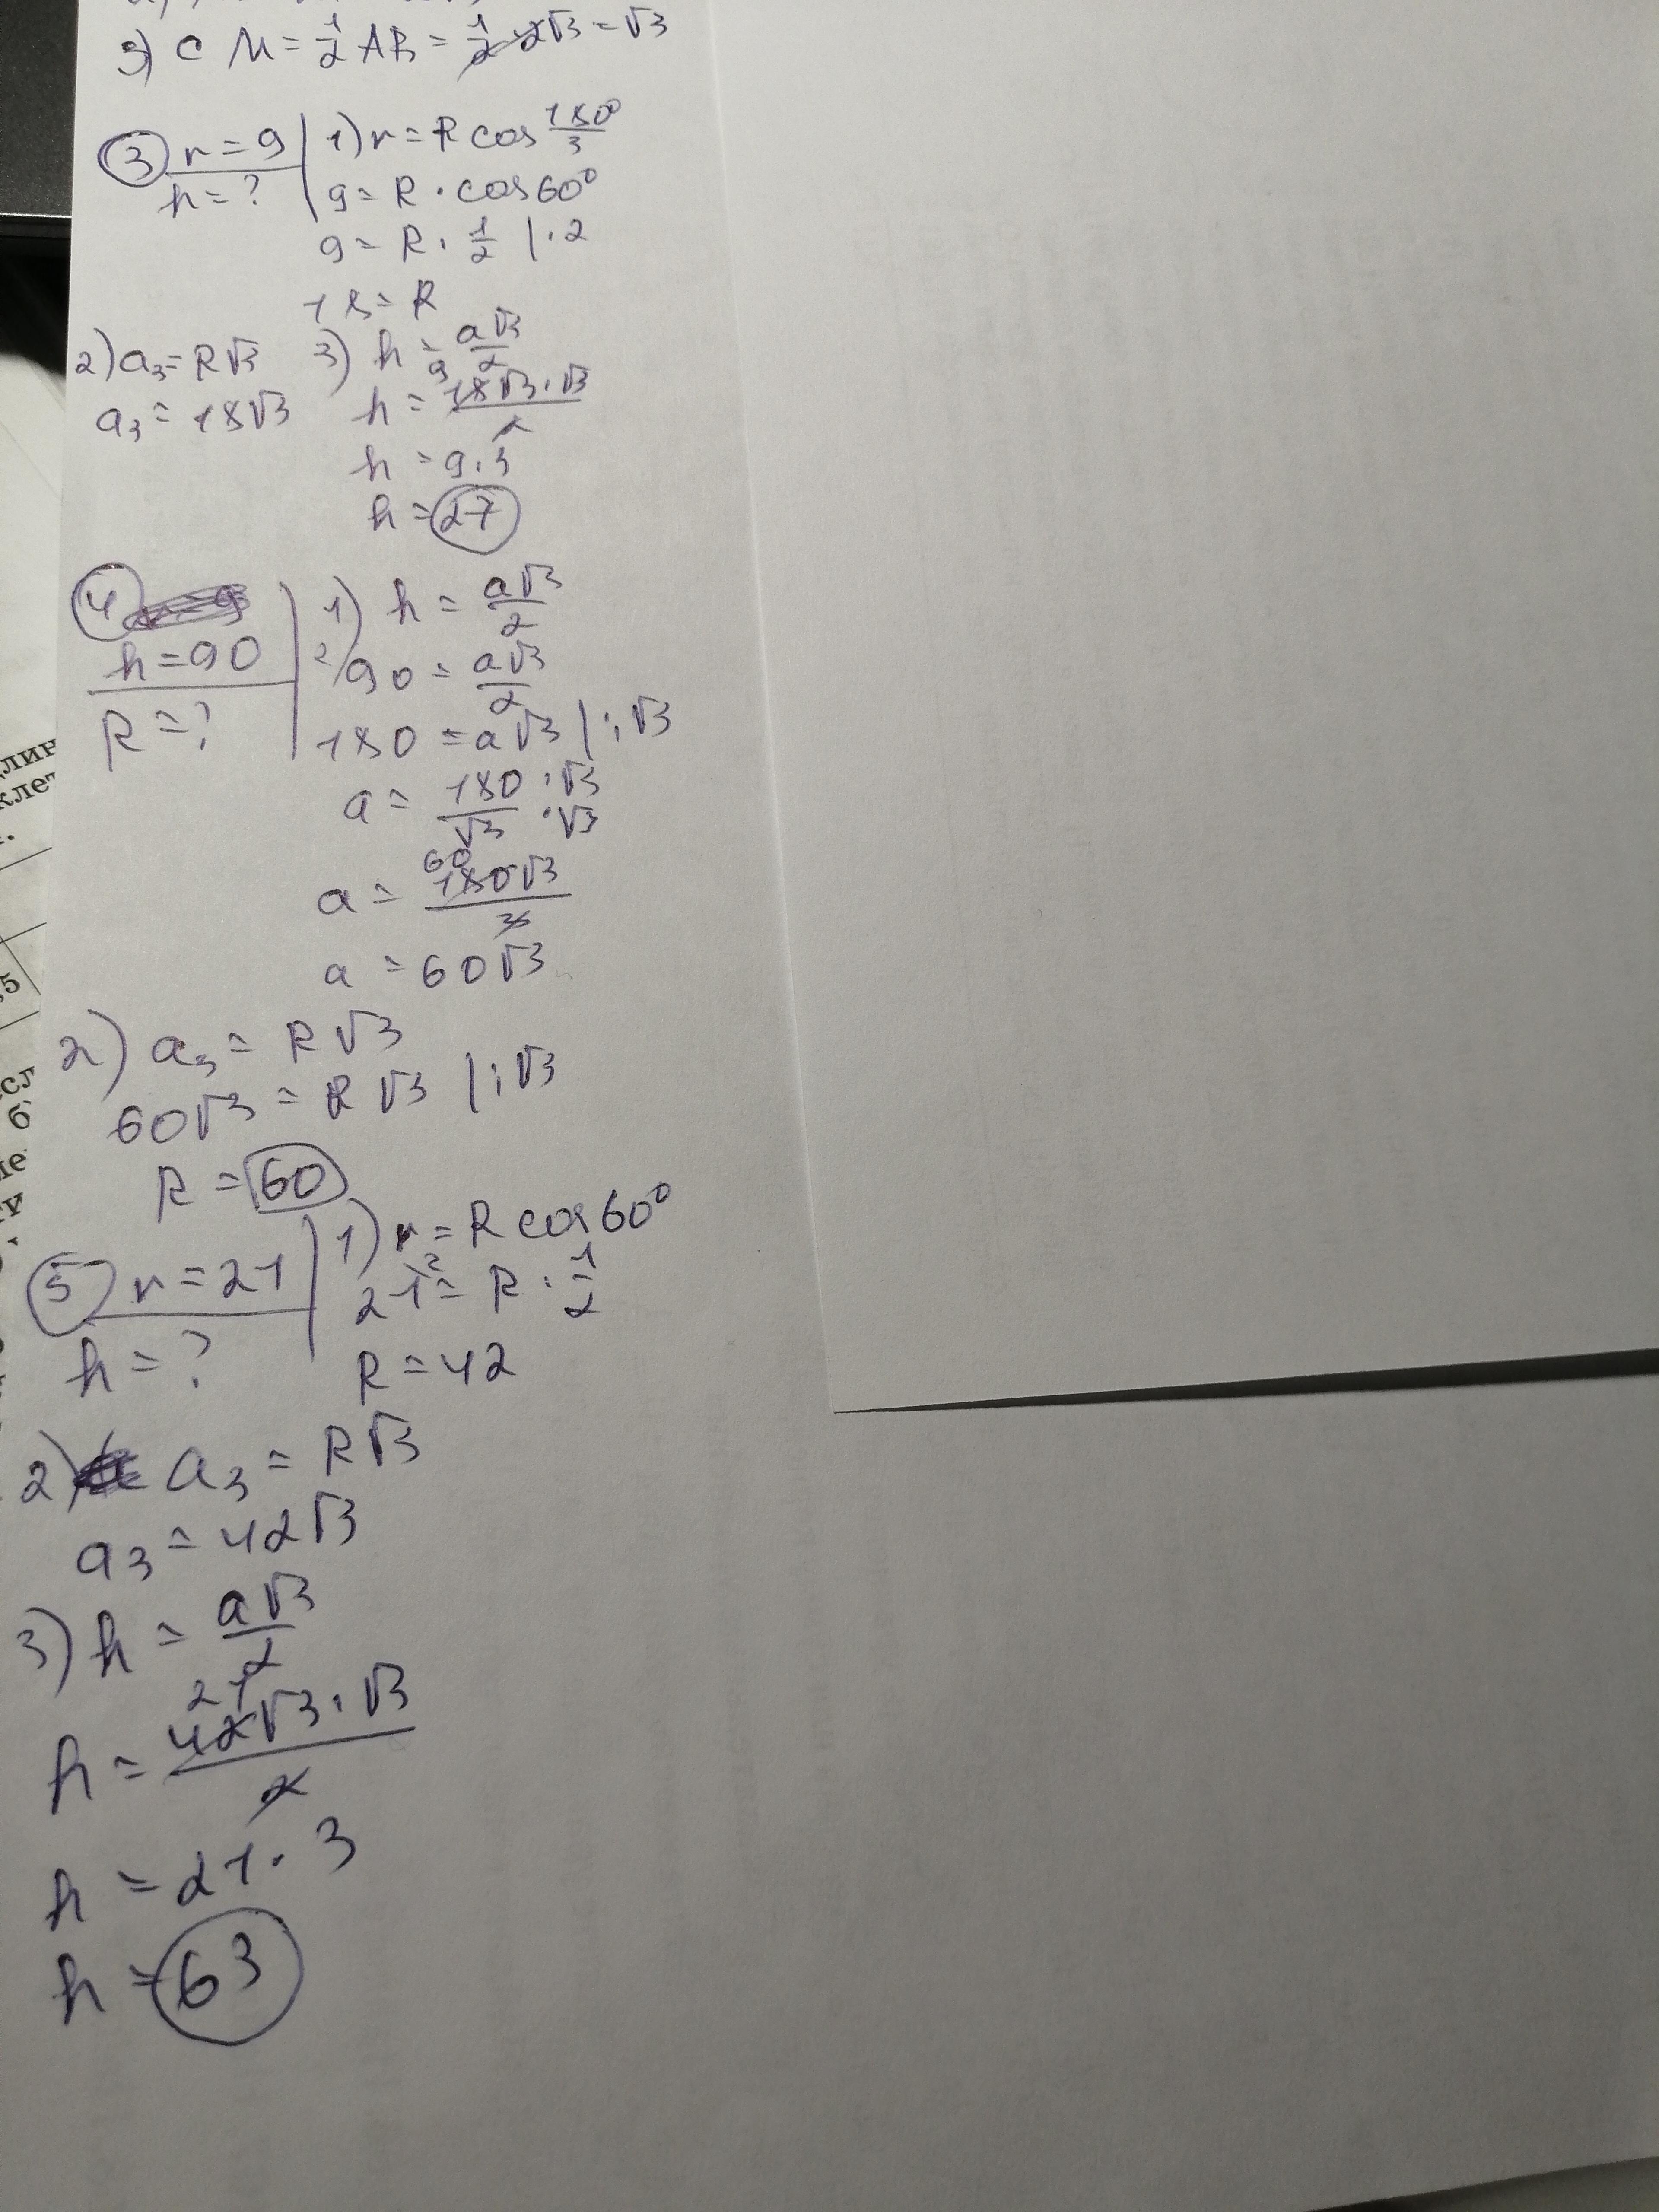 3) CM = 1/2 AB = 1/2 · 2√3 = √3
③ r = 9
h = ?
1) r = R cos 180°/3
9 = R · cos 60°
9 = R · 1/2 | · 2
18 = R
2) a₃ = R√3
a₃ = 18√3
3) h = a√3/2
9
h = 18√3 · √3/2
h = 9 · 3
h = 27
④
h = 90
R = ?
1) h = a√3/2
2/ 90 = a√3/2
180 = a√3 | : √3
a = 180 · √3/√3 · √3
60
a = 180√3/3
a = 60√3
2) a₃ = R√3
60√3 = R√3 | : √3
R = 60
⑤ r = 21
h = ?
1) r = R cos 60°
2
21 = R · 1/2
R = 42
2) a₃ = R√3
a₃ = 42√3
3) h = a√3/2
21
h = 42√3 · √3/2
h = 21 · 3
h = 63
лин
клет
,5
сл
б
ле
ти